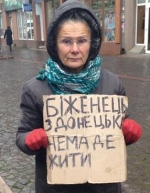 БІЖЕНЕЦЬ
З ДОНЕЦЬК
НЕМА ДЕ
ЖИТИ